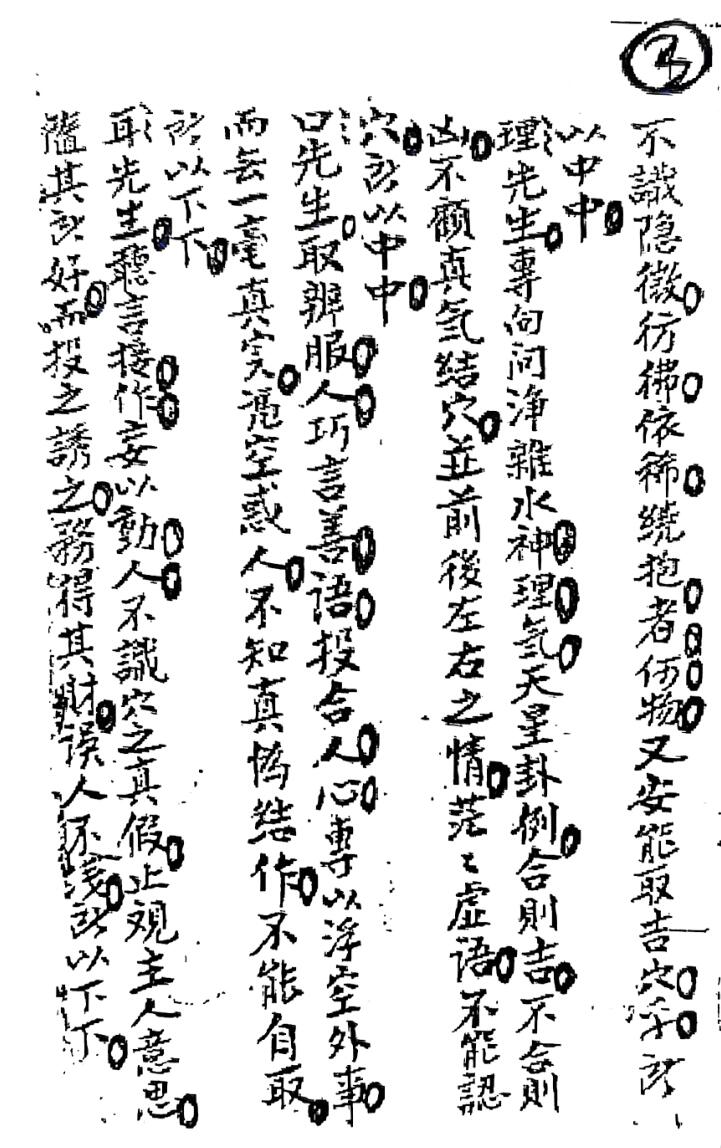 不識隐微彷彿依稀繞抱者何物又安能取吉穴乎所
以中中
理先生專向问浄雜水神理気天星卦例合則吉不合則
凶不顧真気結穴並前後左右之情茫〻虚语不能認
穴所以中中
口先生取辦服人巧言善語投合人心專以浮空外事
而去一毫真实凭空惑人不知真偽结作不能自取
所以下下
耳先生聽言接作妄以動人不識穴之真假止观主人意思
隨其所好而投之誘之務得其財误人不浅所以下下